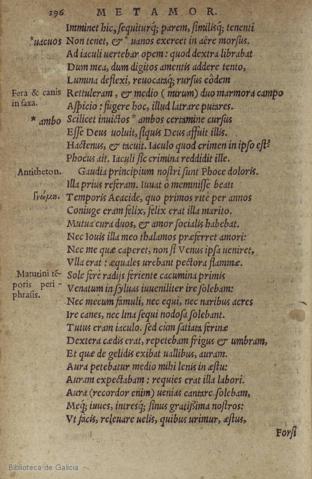 196 METAMOR.
Imminet hic, sequiturq́; parem, similisq́; tenenti
*uacuos Non tenet, & * uanos exercet in aëre morsus.
Ad iaculi uertebar opem: quod dextra librabat
Dum mea, dum digitos amentis addere tento,
Lumina deflexi, reuocataq́; rursus eòdem
Fera & canis Rettuleram, & medio (mirum) duo marmora campo
in saxa. Aspicio: fugere hoc, illud latrare putares.
* ambo Scilicet inuictos * ambos certamine cursus
Esse Deus uoluit, siquis Deus affuit illis.
Hactenus, & tacuit. Iaculo quod crimen in ipso est?
Phocus ait. Iaculi sic crimina reddidit ille.
Antitheton. Gaudia principium nostri sunt Phoce doloris.
Illa prius referam. Iuuat ô meminisse beati
Temporis Aeacide, quo primos ritè per annos
Coniuge eram felix, felix erat illa marito.
Mutua cura duos, & amor socialis habebat.
Nec Iouis illa meo thalamos præferret amori:
Nec me quæ caperet, non si Venus ipsa ueniret,
Vlla erat: æquales urebant pectora flammæ.
Matutini tē- Sole ferè radijs feriente cacumina primis
poris peri- Venatum in syluas iuueniliter ire solebam:
phrasis. Nec mecum famuli, nec equi, nec naribus acres
Ire canes, nec lina sequi nodosa solebant.
Tutus eram iaculo. sed cùm satiata ferinæ
Dextera cædis erat, repetebam frigus & umbram,
Et quæ de gelidis exibat uallibus, auram.
Aura petebatur medio mihi lenis in æstu:
Auram expectabam: requies erat illa labori.
Aura (recordor enim) uenias cantare solebam,
Meq́; iuues, intresq́; sinus gratissima nostros:
Vt facis, releuare uelis, quibus urimur, æstus,
Forsi
Biblioteca de Galicia